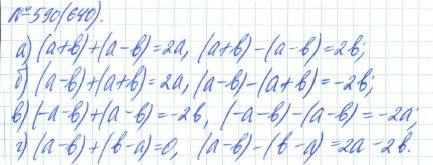 №590(640).
а) (a+b)+(a-b)=2a, (a+b)-(a-b)=2b;
б) (a-b)+(a+b)=2a, (a-b)-(a+b)=-2b;
в) (-a-b)+(a-b)=-2b, (-a-b)-(a-b)=-2a;
г) (a-b)+(b-a)=0, (a-b)-(b-a)=2a-2b.